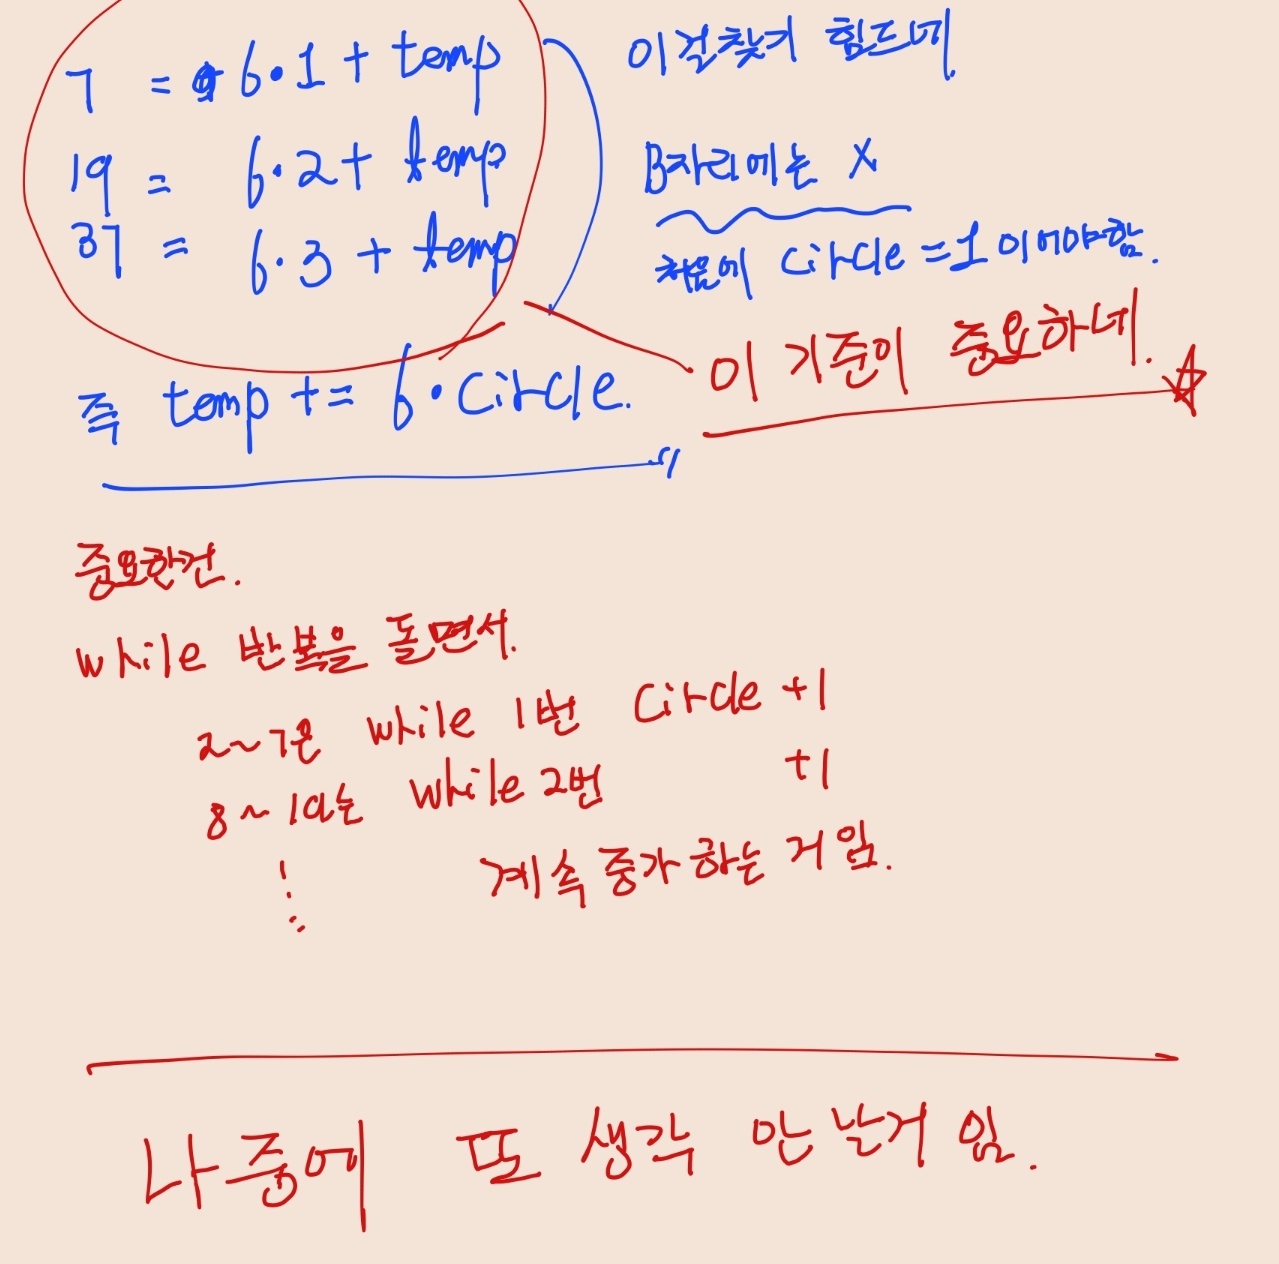 7 = 6·1 + temp
19 = 6·2 + temp
37 = 6·3 + temp
이걸찾기 힘드네.
B자리에는 X
처음에 circle = 1 이어야함.
이 기준이 중요하네.
즉 temp += 6·circle.
중요한건.
while 반복을 돌면서.
2~7은 while 1번 circle +1
8~19는 while 2번 +1
⋮ 계속 증가 하는 거 임.
나중에 또 생각 안 날거 임.